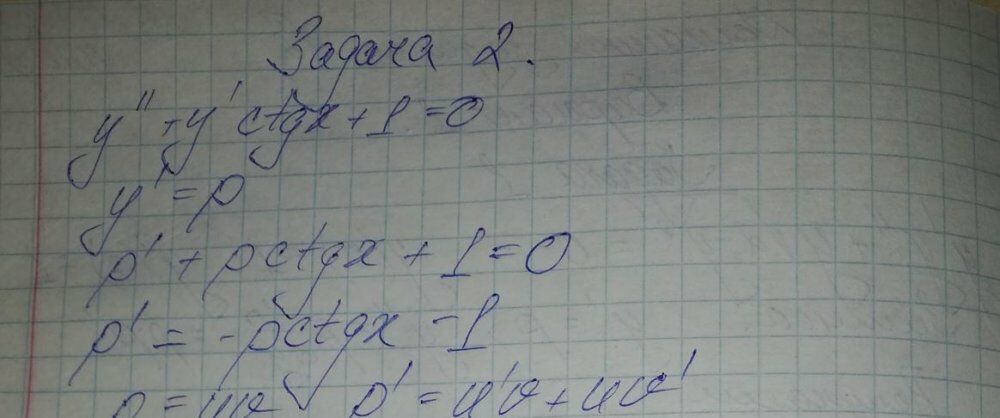 Задача 2.
y'' + y' ctgx + 1 = 0
y' = p
p' + p ctgx + 1 = 0
p' = -p ctgx - 1
p = uv p' = u'v + uv'